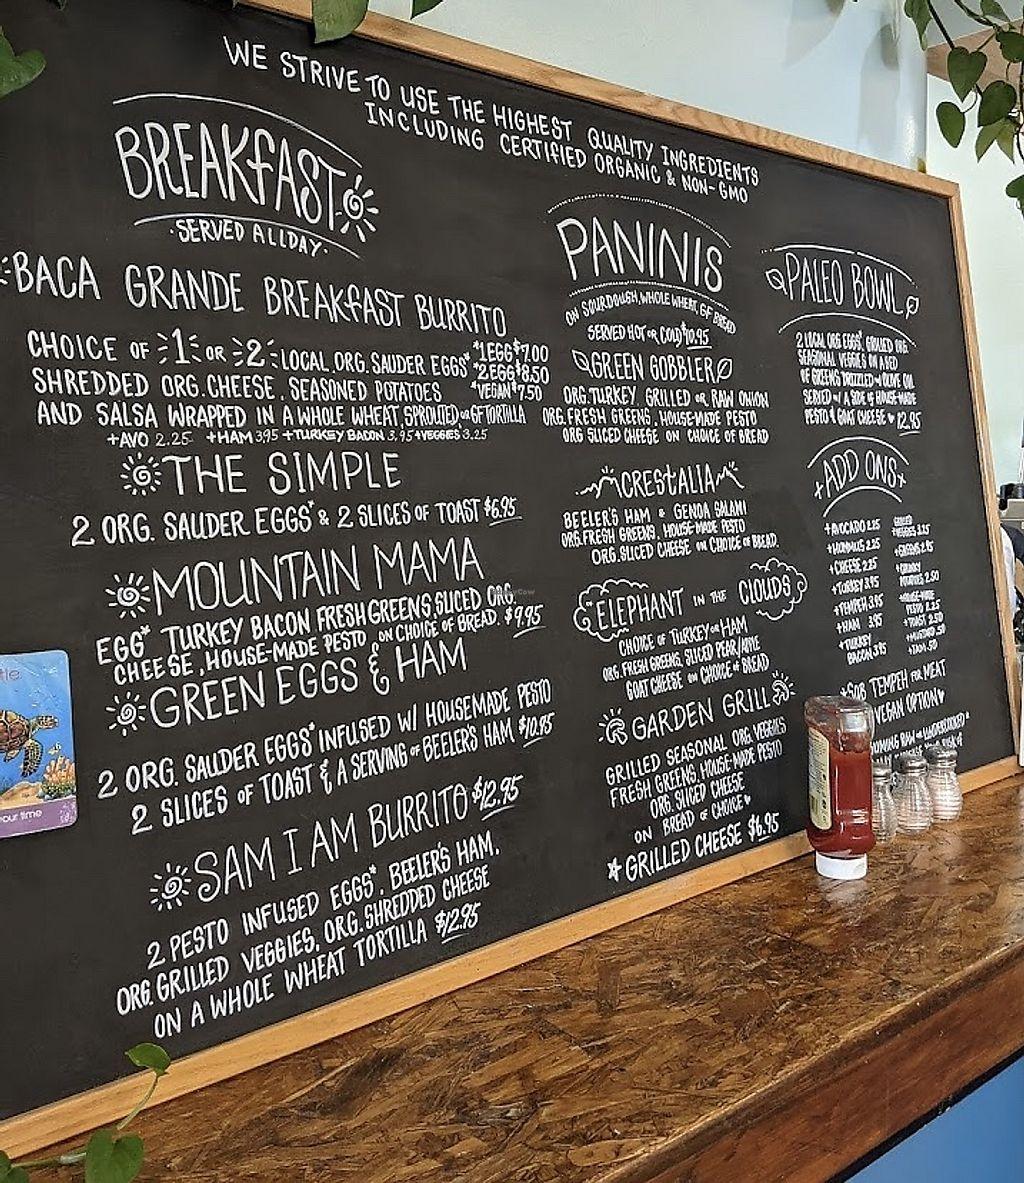 WE STRIVE TO USE THE HIGHEST QUALITY INGREDIENTS
INCLUDING CERTIFIED ORGANIC & NON-GMO
BREAKFAST
·SERVED ALL DAY·
BACA GRANDE BREAKFAST BURRITO
CHOICE OF 1 OR 2 LOCAL ORG. SAUDER EGGS* *1EGG $7.00
SHREDDED ORG. CHEESE, SEASONED POTATOES *2EGG $8.50
AND SALSA WRAPPED IN A WHOLE WHEAT, SPROUTED, OR GF TORTILLA *VEGAN $7.50
+AVO 2.25 +HAM 3.95 +TURKEY BACON 3.95 +VEGGIES 3.25
THE SIMPLE
2 ORG. SAUDER EGGS* & 2 SLICES OF TOAST $6.95
MOUNTAIN MAMA
EGG* TURKEY BACON FRESH GREENS, SLICED ORG.
CHEESE, HOUSE-MADE PESTO ON CHOICE OF BREAD. $9.95
GREEN EGGS & HAM
2 ORG. SAUDER EGGS* INFUSED W/ HOUSEMADE PESTO
2 SLICES OF TOAST & A SERVING OF BEELER'S HAM $10.95
SAM I AM BURRITO $12.95
2 PESTO INFUSED EGGS*, BEELER'S HAM,
ORG. GRILLED VEGGIES, ORG. SHREDDED CHEESE
ON A WHOLE WHEAT TORTILLA $12.95
PANINIS
ON SOURDOUGH, WHOLE WHEAT, GF BREAD
SERVED HOT OR COLD $10.95
GREEN GOBBLER
ORG. TURKEY, GRILLED OR RAW ONION
ORG. FRESH GREENS, HOUSE-MADE PESTO
ORG SLICED CHEESE ON CHOICE OF BREAD
CRESTALIA
BEELER'S HAM & GENOA SALAMI
ORG. FRESH GREENS, HOUSE-MADE PESTO
ORG. SLICED CHEESE ON CHOICE OF BREAD
ELEPHANT IN THE CLOUDS
CHOICE OF TURKEY OR HAM
ORG. FRESH GREENS, SLICED PEAR/APPLE
GOAT CHEESE ON CHOICE OF BREAD
GARDEN GRILL
GRILLED SEASONAL ORG. VEGGIES
FRESH GREENS, HOUSE-MADE PESTO
ORG. SLICED CHEESE
ON BREAD OF CHOICE
GRILLED CHEESE $6.95
PALEO BOWL
2 LOCAL ORG. EGGS*, GRILLED ORG.
SEASONAL VEGGIES ON A BED
OF GREENS DRIZZLED W/ OLIVE OIL
SERVED W/ A SIDE OF HOUSE-MADE
PESTO & GOAT CHEESE 12.95
+ADD ONS+
+AVOCADO 2.25
+HUMMUS 2.25
+CHEESE 2.25
+TURKEY 3.95
+TEMPEH 3.95
+HAM 3.95
+TURKEY
BACON 3.95
GRILLED
+VEGGIES 3.25
+GREENS 2.95
POTATOES 2.50
+HOUSE-MADE
PESTO 2.25
+TOAST 2.50
+MUSTARD .50
+JAM .50
SUB TEMPEH FOR MEAT
VEGAN OPTION
RAW OR UNDERCOOKED
your time